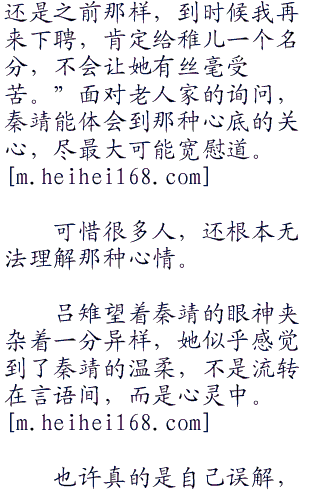 还是之前那样，到时候我再
来下聘，肯定给稚儿一个名
分，不会让她有丝毫受
苦。”面对老人家的询问，
秦靖能体会到那种心底的关
心，尽最大可能宽慰道。
[m.heihei168.com]
可惜很多人，还根本无
法理解那种心情。
吕雉望着秦靖的眼神夹
杂着一分异样，她似乎感觉
到了秦靖的温柔，不是流转
在言语间，而是心灵中。
[m.heihei168.com]
也许真的是自己误解，